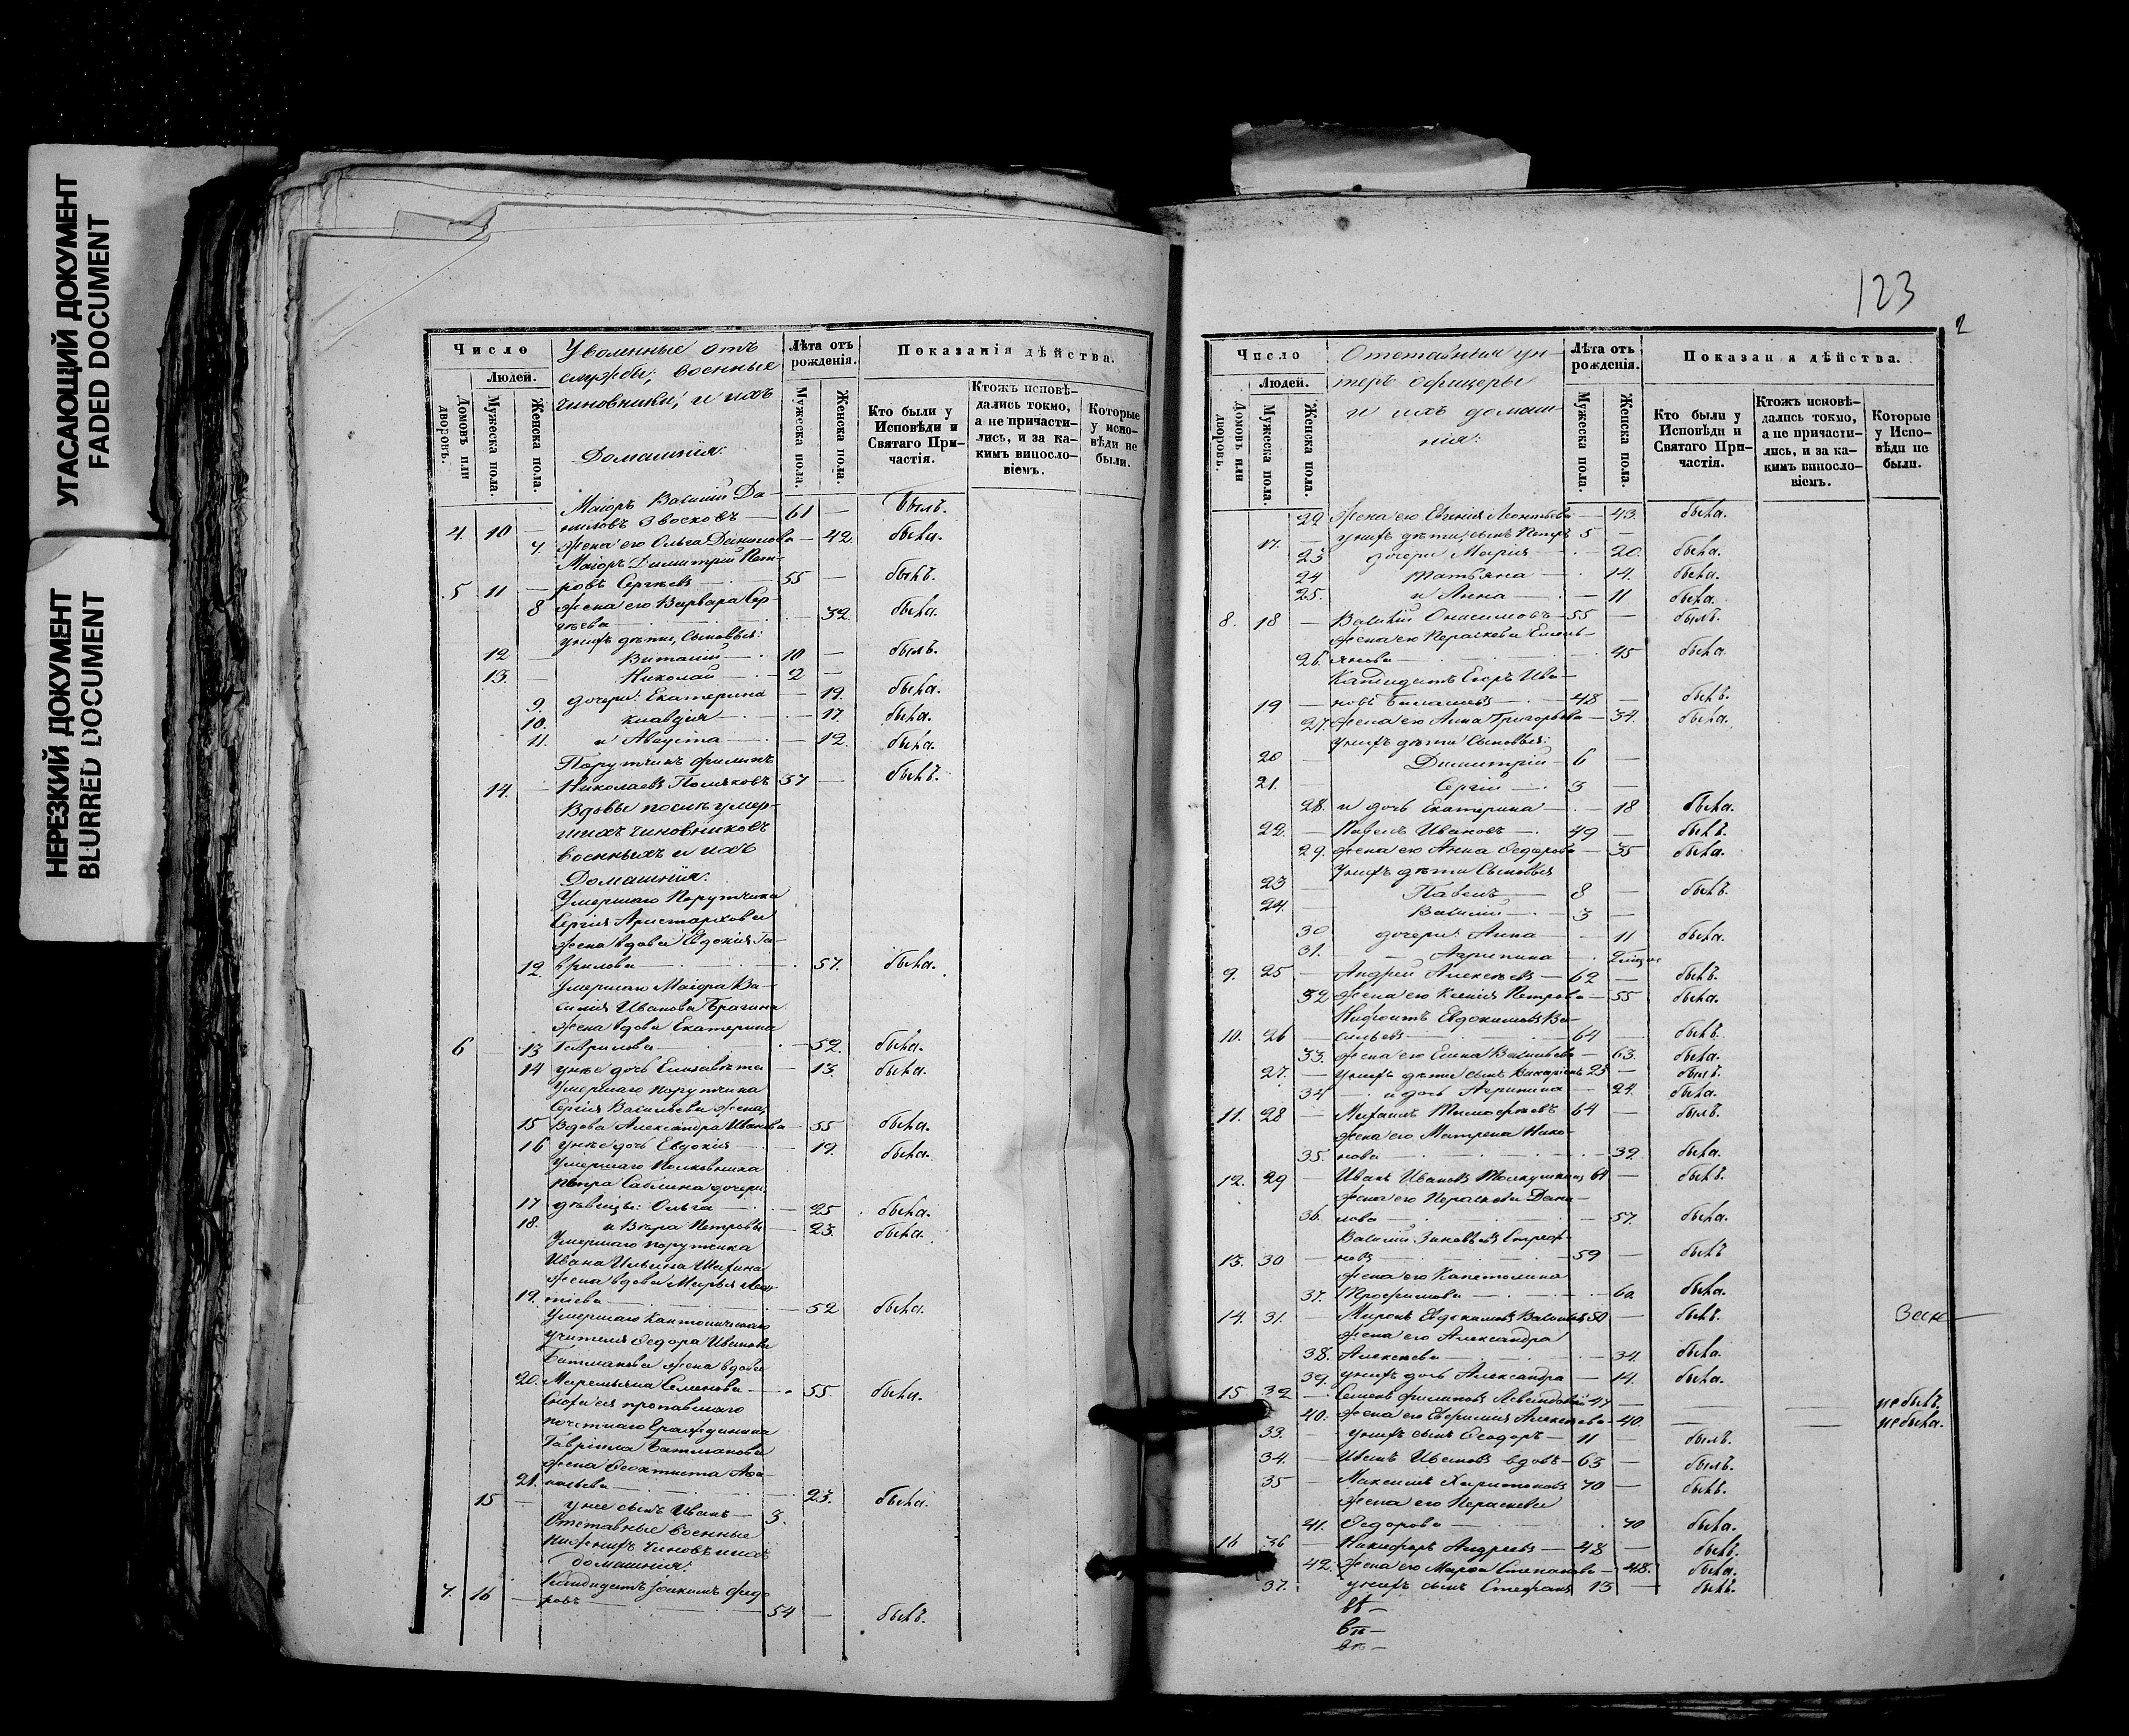 УГАСАЮЩИЙ ДОКУМЕНТ
FADED DOCUMENT
НЕРЕЗКИЙ ДОКУМЕНТ
BLURRED DOCUMENT
Число
Людей.
Домовъ или дворовъ.
Мужеска пола.
Женска пола.
Уволенные отъ
службы, военные
чиновники, и ихъ
Домашнія.
Лѣта отъ рожденія.
Мужеска пола.
Женска пола.
Показанія дѣйства.
Кто были у Исповѣди и Святаго Причастія.
Ктожъ исповѣдались токмо, а не причастились, и за какимъ винословіемъ.
Которые у исповѣди не были.
Маіоръ Василій Да-
4. 10 — ниловъ Звосковъ 61 — былъ.
7. жена его Ольга — 42. была.
Маіоръ Димитрій Пет-
5 11 — ровъ Сергѣевъ 55 — былъ.
8 жена его Варвара Сер-
гѣева — 32. была.
у нихъ дѣти, сыновья:
12 — Виталий 10 — былъ.
13. — Николай 2 —
9. дочери: Екатерина — 19. была.
10. Клавдія — 17. была.
11. и Августа — 12. была.
Порутчикъ Филипъ
14. — Николаевъ Поляковъ 37 — былъ.
Вдовы послѣ умер-
шихъ чиновниковъ
военныхъ и ихъ
Домашнія:
Умершаго Порутчика
Сергія Аристархова
жена вдова Евдокія Га-
12. врилова — 57. была.
Умершаго Маіора Ва-
силія Иванова Брагина
жена вдова Екатерина
6 13 Гаврилова — 52. была.
14 у нѣе дочь Елисавѣта — 13. была.
Умершаго порутчика
Сергія Васильева жена,
15 Вдова Александра Иванова — 55 была.
16 у нѣе дочь Евдокія — 19. была.
Умершаго Полковника
Петра Саблина дочери
17 дѣвицы: Ольга — 25 была.
18. и Вѣра Петровы — 23. была.
Умершаго порутчика
Ивана Ильина
жена вдова Марья Леон-
19. тіева — 52 была.
Умершаго
учителя Ѳедора Иванова
Батманова жена вдова
20. Семенова — 55. была.
Сноха ея пропавшаго
почетнаго Гражданина
Гавріила Батманова
жена Ѳеоктиста Аѳа-
21. насьева — 23. была.
15 — у нее сынъ Иванъ 3.
Отставные военные
нижнихъ чиновъ и ихъ
домашнія:
Кандидатъ Іоакимъ Ѳедо
7. 16 — ровъ 54 — былъ.
123
2
Число
Людей.
Домовъ или дворовъ.
Мужеска пола.
Женска пола.
Отставныя ун-
теръ офицеры
и ихъ домаш-
нія:
Лѣта отъ рожденія.
Мужеска пола.
Женска пола.
Показан я дѣйства.
Кто были у Исповѣди и Святаго Причастія.
Ктожъ исповѣдались токмо, а не причастились, и за какимъ винословіемъ.
Которые у Исповѣди не были.
22. жена его Евгенія Леонтьева — 43. была.
17. — у нихъ дѣти, сынъ Петръ 5 —
23 дочери Марія — 20. была.
24 Татьяна — 14. была.
25. и Анна — 11 была.
8. 18 — Василій Онисимовъ 55 — былъ.
жена его Параскева Емель-
26. янова — 45 была.
Кандидатъ Егоръ Ива-
19 — новъ 48 — былъ.
27. жена его Анна Григорьева — 34. была.
У нихъ дѣти сыновья:
20 — Димитрій 6 —
21. — Сергій 3 —
28. и дочь Екатерина — 18 была.
22. — Павелъ Ивановъ 49 — былъ.
29. жена его Анна Ѳедорова — 35 была.
У нихъ дѣти сыновья
23 — Павелъ 8 — былъ.
24. — Василій 3 —
30 дочери: Анна — 11 была.
31. Агрипина — 2
9. 25 — Андрей Алексѣевъ 62 — былъ.
32 жена его Ксенія Петрова — 55 была.
Евдокимовъ Ва-
10. 26 — сильевъ 64 — былъ.
33. жена его Елена Васильева — 63. была.
27. — у нихъ дѣти сынъ 23 — былъ.
34 и дочь Агрипина — 24. была.
11. 28 — Михаилъ Тимофѣевъ 64 — былъ.
жена его Матрена Нико-
35. нова — 39. была.
12. 29 — Иванъ Ивановъ 61 — былъ.
жена его Параскева Дани-
36. лова — 57. была.
Василій
13. 30 — новъ 59 — былъ
жена его Капетолина
37. Трофимова — 60 была.
14. 31. — Миронъ Евдокимовъ Васильевъ 50 — былъ.
жена его Александра
38. Алексѣева — 34. была.
39. у нихъ дочь Александра — 14. была.
15 32 — Семенъ Филиповъ 47 — — — не былъ.
40. жена его Евфимія Алексѣева — 40. — — не была.
33. — у нихъ сынъ Ѳеодоръ 11 — былъ.
34. — Иванъ Ивановъ вдовъ 63 — былъ.
35 — Максимъ Харитоновъ 70 — былъ.
жена его Параскева
41. Ѳедорова — 70 была.
16 36 — Никифоръ Андреевъ 48 — былъ.
42. жена его Марѳа Степанова — 48. была.
37. у нихъ сынъ Стефанъ 13 — былъ.